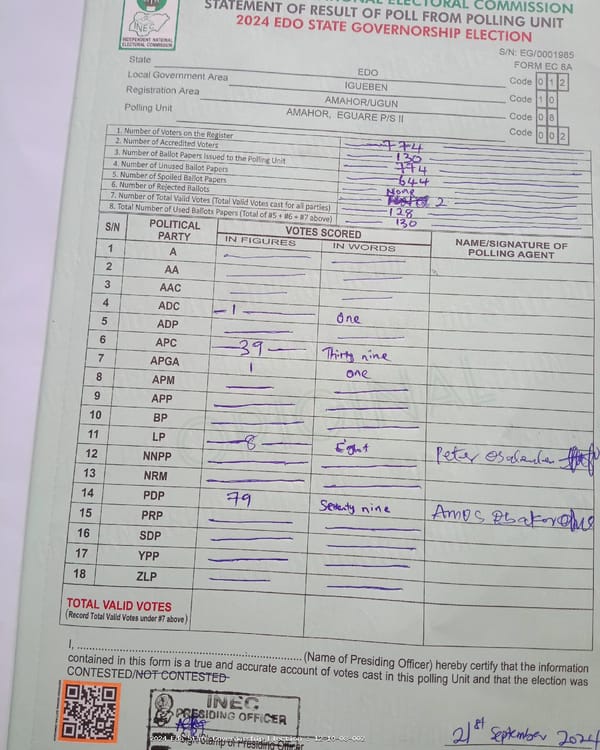 INDEPENDENT NATIONAL ELECTORAL COMMISSION
STATEMENT OF RESULT OF POLL FROM POLLING UNIT
2024 EDO STATE GOVERNORSHIP ELECTION
S/N: EG/0001985
FORM EC 8A
State EDO Code 0 1 2
Local Government Area IGUEBEN Code 1 0
Registration Area AMAHOR/UGUN Code 0 8
Polling Unit AMAHOR, EGUARE P/S II Code 0 0 2
1. Number of Voters on the Register 774
2. Number of Accredited Voters 130
3. Number of Ballot Papers Issued to the Polling Unit 774
4. Number of Unused Ballot Papers 644
5. Number of Spoiled Ballot Papers None
6. Number of Rejected Ballots 2
7. Number of Total Valid Votes (Total Valid Votes cast for all parties) 128
8. Total Number of Used Ballots Papers (Total of #5 + #6 + #7 above) 130
S/N POLITICAL PARTY VOTES SCORED NAME/SIGNATURE OF POLLING AGENT
IN FIGURES IN WORDS
1 A
2 AA
3 AAC
4 ADC 1 One
5 ADP
6 APC 39 Thirty nine
7 APGA 1 one
8 APM
9 APP
10 BP
11 LP 8 Eight Peter
12 NNPP
13 NRM
14 PDP 79 Seventy nine Amos
15 PRP
16 SDP
17 YPP
18 ZLP
TOTAL VALID VOTES
(Record Total Valid Votes under #7 above)
I, (Name of Presiding Officer) hereby certify that the information
contained in this form is a true and accurate account of votes cast in this polling Unit and that the election was
CONTESTED/NOT CONTESTED
INEC
PRESIDING OFFICER
Sign/Stamp of Presiding Officer
21st September 2024